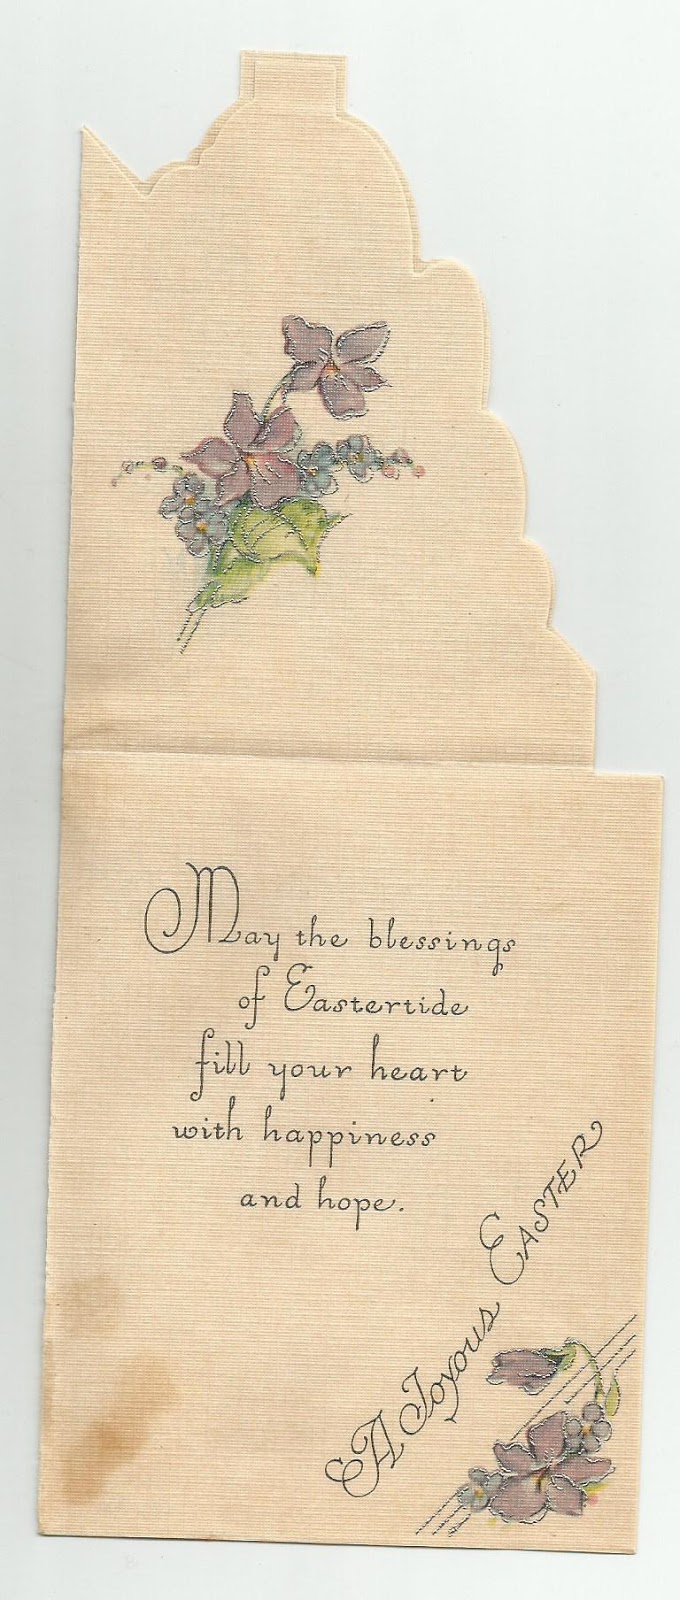 May the blessings
of Eastertide
fill your heart
with happiness
and hope.
A Joyous EASTER